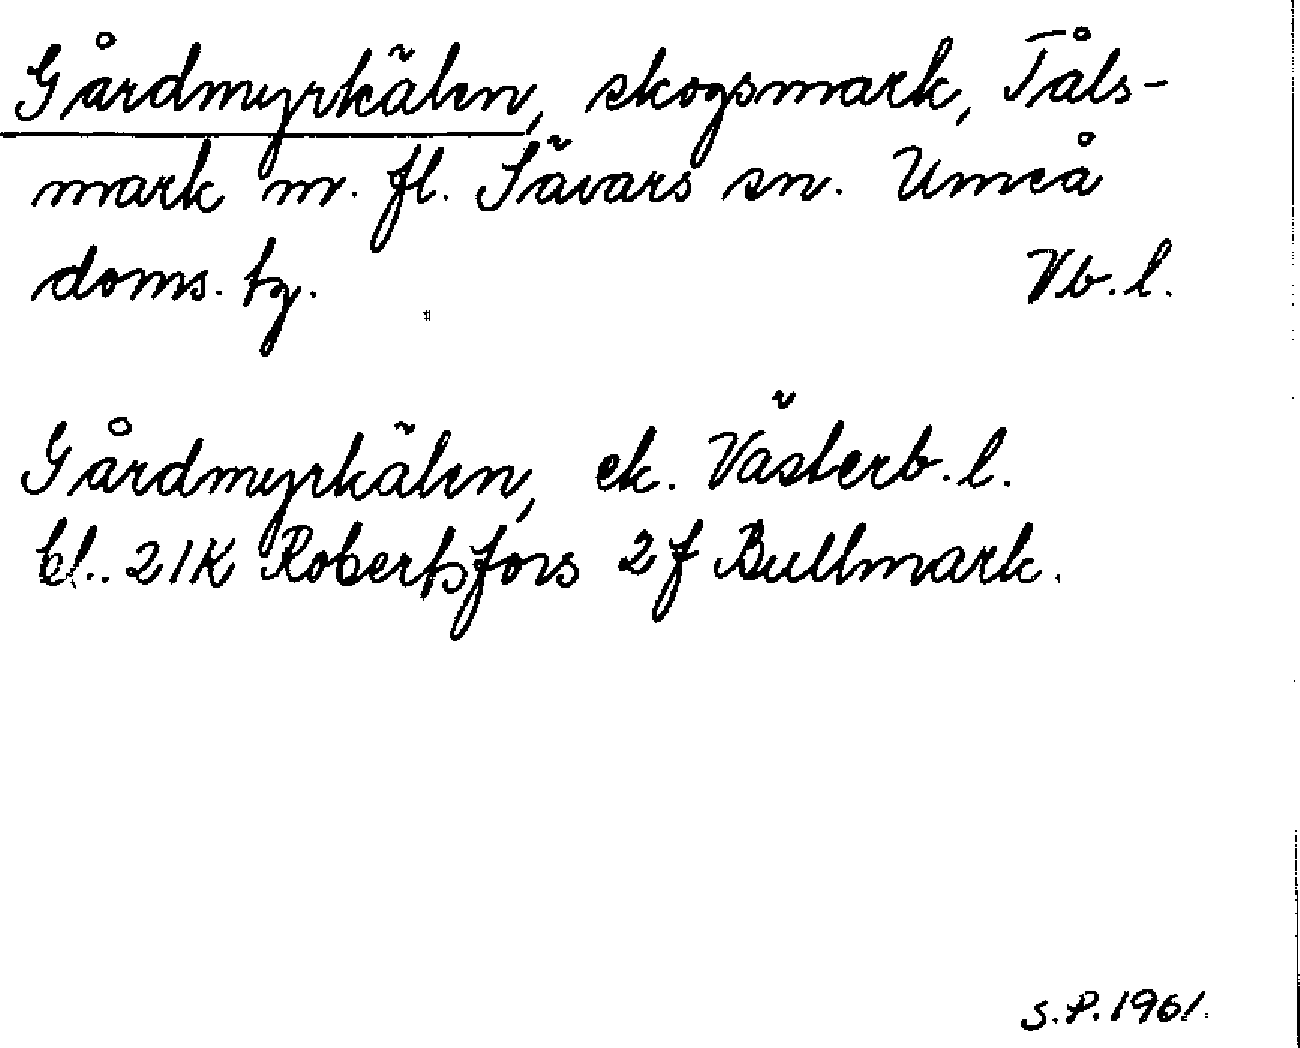 Gårdmyrkälen, skogsmark, Tåls-
mark m. fl. Sävars sn. Umeå
doms. tg. Vb. l.
Gårdmyrkälen, ek. Västerb. l.
bl. 21K Robertsfors 2f Bullmark.
S.P. 1961.